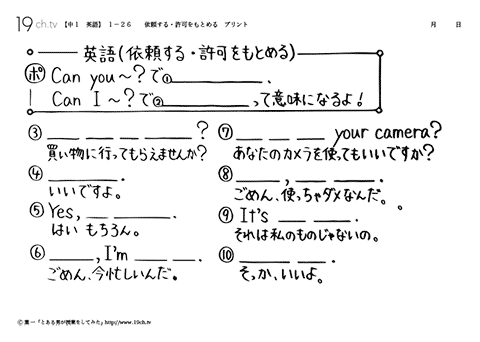 19 ch.tv 【中1 英語】 1－26 依頼する・許可をもとめる プリント 月 日
英語(依頼する・許可をもとめる)
ポ Can you～?で①__________.
Can I～?で②__________って意味になるよ!
③ ___ ___ ___ ______?
買い物に行ってもらえませんか?
④ ______.
いいですよ。
⑤ Yes, ___ ______.
はい もちろん。
⑥ ____, I'm ____ ___.
ごめん、今忙しいんだ。
⑦ ___ ___ ___ your camera?
あなたのカメラを使ってもいいですか?
⑧ ____, ___ ____.
ごめん、使っちゃダメなんだ。
⑨ It's ___ ____.
それは私のものじゃないの。
⑩ ___ ____.
そっか、いいよ。
Ⓒ 葉一「とある男が授業をしてみた」http://www.19ch.tv